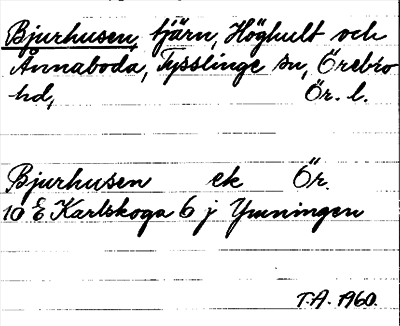 Bjurhusen, tjärn, Höghult och
Ånnaboda, Tysslinge sn, Örebro
hd, Ör. l.
Bjurhusen ek Ör.
10 E Karlskoga 6 j Ymningen
T.A. 1960.